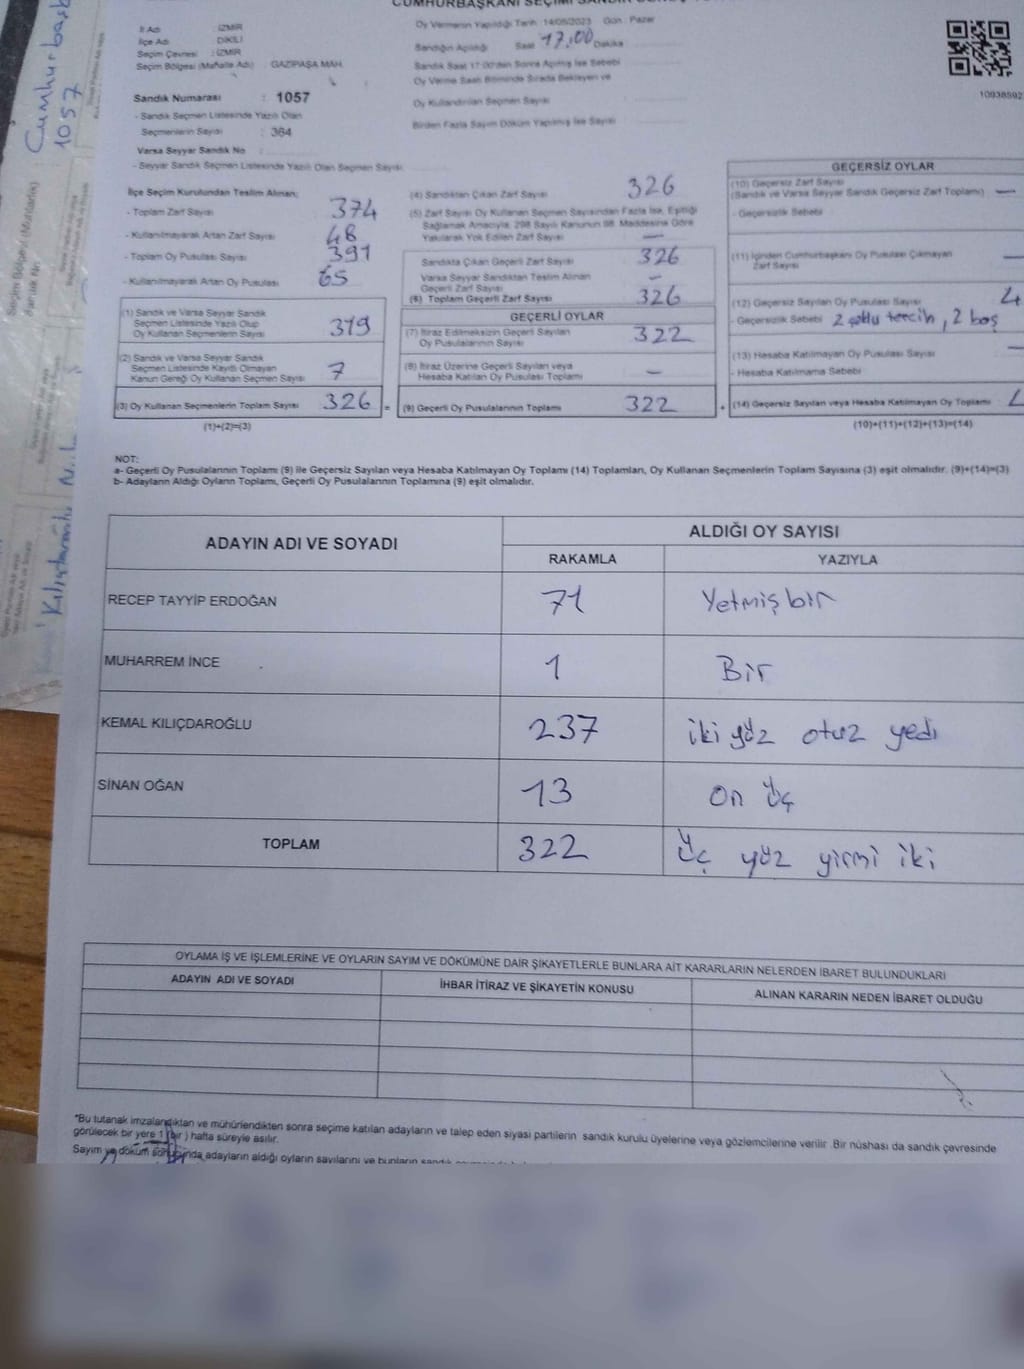 CUMHURBAŞKANI SEÇİMİ SANDIK
Oy Vermenin Yapıldığı Tarih : 14/05/2023 Gün : Pazar
İl Adı : İZMİR
İlçe Adı : DİKİLİ
Seçim Çevresi : İZMİR
Seçim Bölgesi (Mahalle Adı) : GAZİPAŞA MAH.
Sandığın Açıldığı Saat 17:00 Dakika
Sandık Saat 17:00'den Sonra Açılmış İse Sebebi
Oy Verme Saati Bitiminde Sırada Bekleyen ve
Oy Kullandırılan Seçmen Sayısı
Birden Fazla Sayım Döküm Yapılmış İse Sayısı
Sandık Numarası : 1057
- Sandık Seçmen Listesinde Yazılı Olan
Seçmenlerin Sayısı : 364
Varsa Seyyar Sandık No
- Seyyar Sandık Seçmen Listesinde Yazılı Olan Seçmen Sayısı
İlçe Seçim Kurulundan Teslim Alınan;
- Toplam Zarf Sayısı 374
- Kullanılmayarak Artan Zarf Sayısı 48
- Toplam Oy Pusulası Sayısı 391
- Kullanılmayarak Artan Oy Pusulası 65
(1) Sandık ve Varsa Seyyar Sandık
Seçmen Listesinde Yazılı Olup
Oy Kullanan Seçmenlerin Sayısı 319
(2) Sandık ve Varsa Seyyar Sandık
Seçmen Listesinde Kayıtlı Olmayan
Kanun Gereği Oy Kullanan Seçmen Sayısı 7
(3) Oy Kullanan Seçmenlerin Toplam Sayısı 326 =
(1)+(2)=(3)
(4) Sandıktan Çıkan Zarf Sayısı 326
(5) Zarf Sayısı Oy Kullanan Seçmen Sayısından Fazla İse, Eşitliği
Sağlamak Amacıyla, 298 Sayılı Kanunun 98. Maddesine Göre
Yakılarak Yok Edilen Zarf Sayısı —
Sandıkta Çıkan Geçerli Zarf Sayısı 326
Varsa Seyyar Sandıktan Teslim Alınan
Geçerli Zarf Sayısı —
(6) Toplam Geçerli Zarf Sayısı 326
GEÇERLİ OYLAR
(7) İtiraz Edilmeksizin Geçerli Sayılan
Oy Pusulalarının Sayısı 322
(8) İtiraz Üzerine Geçerli Sayılan veya
Hesaba Katılan Oy Pusulası Toplamı —
(9) Geçerli Oy Pusulalarının Toplamı 322 +
GEÇERSİZ OYLAR
(10) Geçersiz Zarf Sayısı
(Sandık ve Varsa Seyyar Sandık Geçersiz Zarf Toplamı) —
- Geçersizlik Sebebi
(11) İçinden Cumhurbaşkanı Oy Pusulası Çıkmayan
Zarf Sayısı —
(12) Geçersiz Sayılan Oy Pusulası Sayısı 4
- Geçersizlik Sebebi 2 çoklu tercih, 2 boş
(13) Hesaba Katılmayan Oy Pusulası Sayısı —
- Hesaba Katılmama Sebebi
(14) Geçersiz Sayılan veya Hesaba Katılmayan Oy Toplamı
(10)+(11)+(12)+(13)=(14)
NOT:
a- Geçerli Oy Pusulalarının Toplamı (9) ile Geçersiz Sayılan veya Hesaba Katılmayan Oy Toplamı (14) Toplamları, Oy Kullanan Seçmenlerin Toplam Sayısına (3) eşit olmalıdır. (9)+(14)=(3)
b- Adayların Aldığı Oyların Toplamı, Geçerli Oy Pusulalarının Toplamına (9) eşit olmalıdır.
ADAYIN ADI VE SOYADI ALDIĞI OY SAYISI
RAKAMLA YAZIYLA
RECEP TAYYİP ERDOĞAN 71 Yetmiş bir
MUHARREM İNCE 1 Bir
KEMAL KILIÇDAROĞLU 237 iki yüz otuz yedi
SİNAN OĞAN 13 on üç
TOPLAM 322 Üç yüz yirmi iki
OYLAMA İŞ VE İŞLEMLERİNE VE OYLARIN SAYIM VE DÖKÜMÜNE DAİR ŞİKAYETLERLE BUNLARA AİT KARARLARIN NELERDEN İBARET BULUNDUKLARI
ADAYIN ADI VE SOYADI İHBAR İTİRAZ VE ŞİKAYETİN KONUSU ALINAN KARARIN NEDEN İBARET OLDUĞU
*Bu tutanak imzalandıktan ve mühürlendikten sonra seçime katılan adayların ve talep eden siyasi partilerin sandık kurulu üyelerine veya gözlemcilerine verilir. Bir nüshası da sandık çevresinde
görülecek bir yere 1 (bir) hafta süreyle asılır.
Sayım ve döküm sonucunda adayların aldığı oyların sayılarını ve bunların sandık
Cumhurbaşk
1057
Kılıçdaroğlu